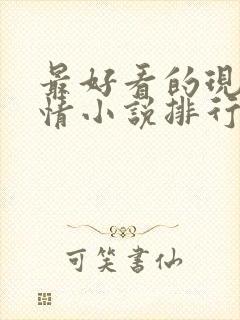 最好看的現
情小説排行
可笑書仙